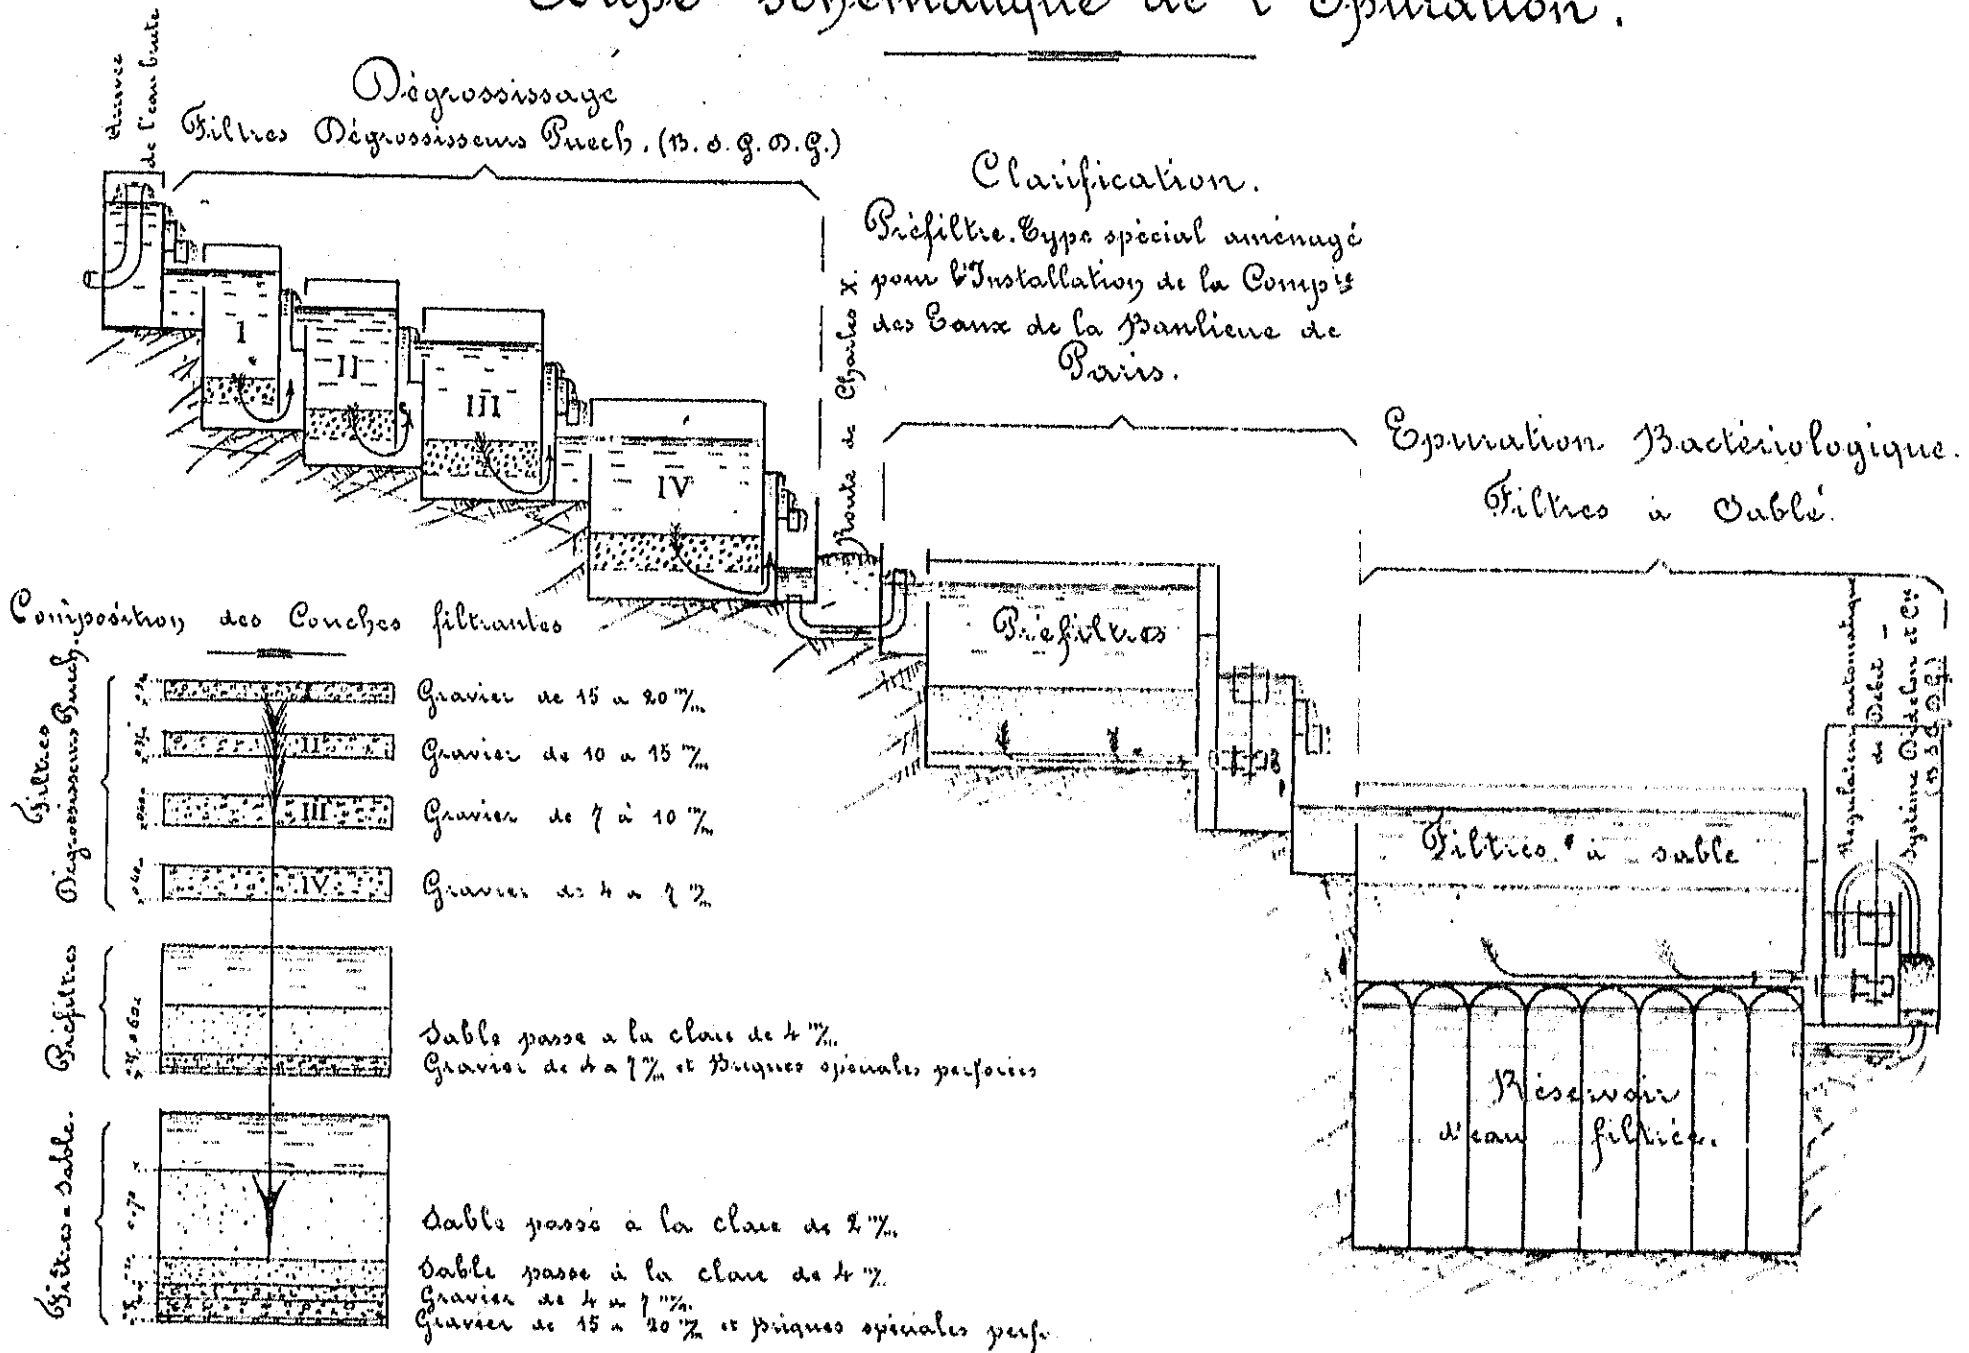 Coupe schématique de l'Epuration.
Arrivée
de l'eau brute
Dégrossissage
Filtres Dégrossisseurs Puech. (B.S.G.D.G.)
Clarification.
Préfiltre. Type spécial aménagé
pour l'Installation de la Compie
des Eaux de la Banlieue de
Paris.
Route de Charles X.
Epuration Bactériologique.
Filtres à Sable.
I
II
III
IV
Préfiltres
Régulateur automatique
de Débit –
Système Didelon et Cie
(B.S.G.D.G.)
Filtres à sable
Réservoir
d'eau filtrée.
Composition des Couches filtrantes
Filtres
Dégrossisseurs Puech.
I
Gravier de 15 a 20 m/m
II
Gravier de 10 a 15 m/m
III
Gravier de 7 à 10 m/m
IV
Gravier de 4 a 7 m/m
Préfiltres
Sable passe a la claie de 4 m/m
Gravier de 4 a 7 m/m et Briques spéciales perforées
Filtres à Sable.
0.70
Sable passé à la claie de 2 m/m
Sable passe à la claie de 4 m/m
Gravier de 4 a 7 m/m
Gravier de 15 a 20 m/m et briques spéciales perf.